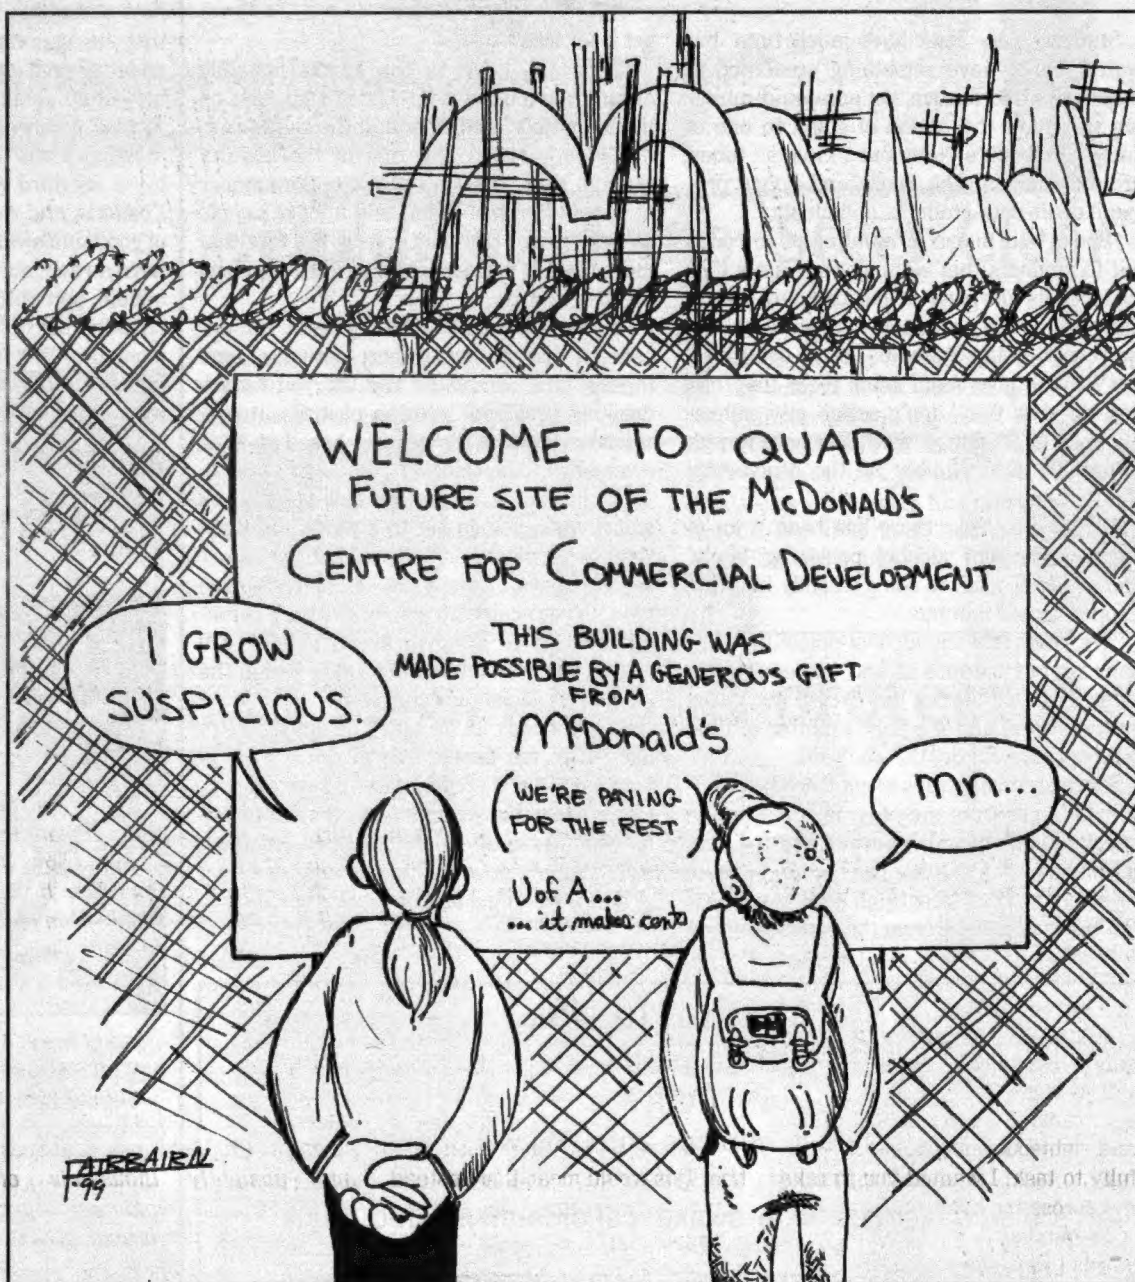 WELCOME TO QUAD
FUTURE SITE OF THE McDONALD'S
CENTRE FOR COMMERCIAL DEVELOPMENT
THIS BUILDING WAS
MADE POSSIBLE BY A GENEROUS GIFT
FROM
McDonald's
WE'RE PAYING
FOR THE REST
U of A...
... it makes cents
I GROW
SUSPICIOUS.
mn...
FAIRBAIRN
'99